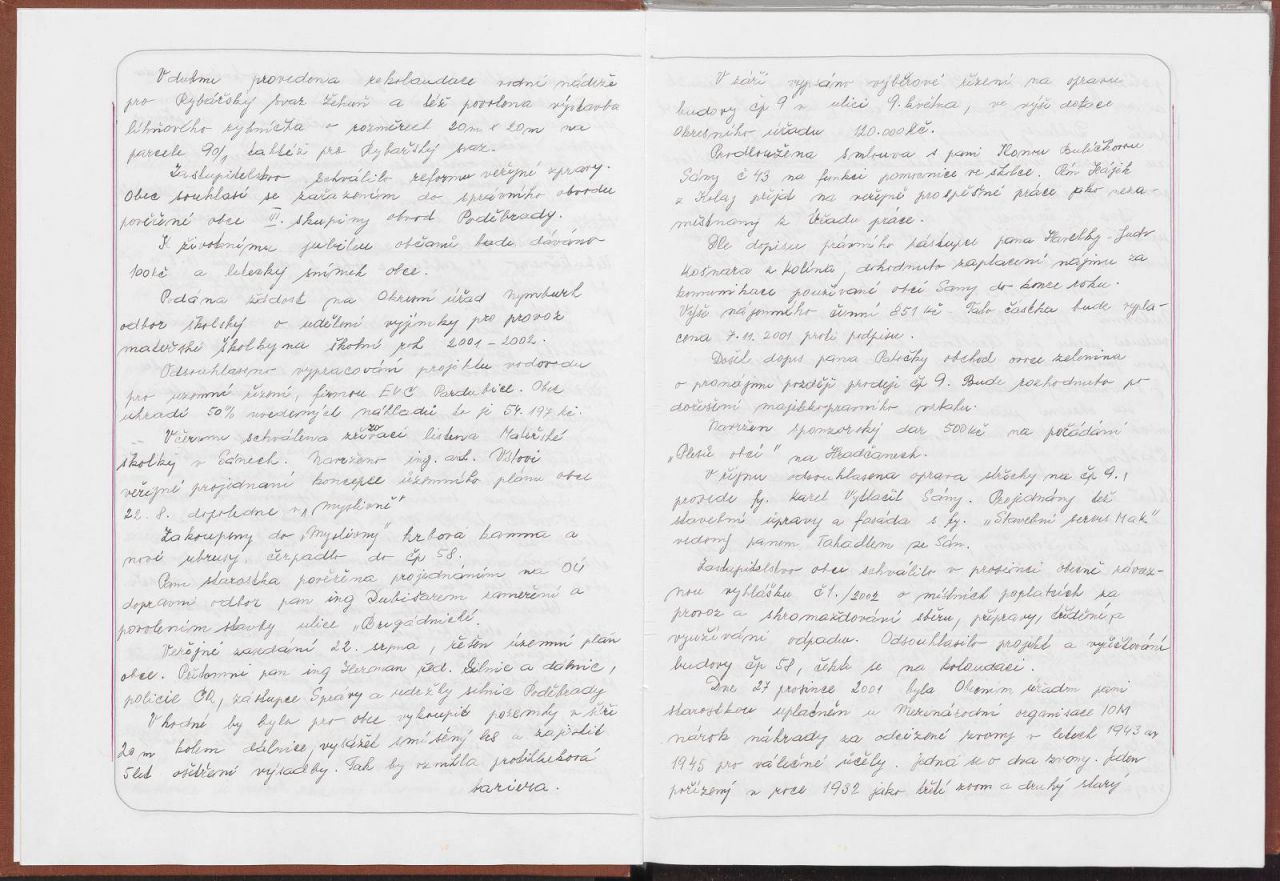 V dubnu provedena rekolaudace vodní nádrže
pro Rybářský svaz Žehuň a též povolena výstavba
líhňového rybníčka o rozměrech 20m x 20m na
parcele 90/1 taktéž pro Rybářský svaz.
Zastupitelstvo schválilo reformu veřejné zpravy.
Obec souhlasí se zařazením do správního obvodu
pověřené obce III. skupiny obvod Poděbrady.
K životnímu jubileu občanů bude dáváno
100 Kč a letecký snímek obce.
Podána žádost na Okresní úřad Nymburk
odbor školský o udělení vyjímky pro provoz
mateřské školky na školní rok 2001 - 2002.
Odsouhlaseno vypracování projektu vodovodu
pro územní řízení, firmou EVČ Pardubice. Obec
uhradí 50% uvedených nákladů to je 54.197 Kč.
V červnu schválena zřizovací listina Mateřské
školky v Sánech. Navrženo ing. arch.
veřejné projednání koncepce územního plánu obce
22. 8. dopoledne v „Myslivně"
Zakoupeny do „Myslivny" krbová kamna a
nové ubrusy, čerpadlo do čp 58.
Paní starostka pověřena projednáním na OÚ
dopravní odbor pan ing Dubišarem zaměření a
povolením stavby ulice „Brigádnické.
Veřejné zasedání 22. srpna, řešen územní plán
obce. Přítomni pan ing Herzman řed. silnic a dálnic,
policie ČR, zástupce Správy a údržby silnic Poděbrady
Vhodné by bylo pro obec vykoupit pozemky v šíři
20 m kolem dálnice, vysázet smíšený les a zajistit
5 let ošetření výsadby. Tak by vznikla protihluková
bariera.
V září vypsáno výběrové řízení na opravu
budovy čp 9 v ulici 9. května, ve výši dotace
Okresního úřadu 120.000 Kč.
Prodloužena smlouva s paní Hanou Bubíčkovou
Sány č 43 na funkci pomocnice ve školce. Pan Hájek
z Kolaj přijat na veřejně prospěšné práce jako neza-
městnaný z Úřadu práce.
Dle dopisu právního zástupce pana Havelky - Judr
Košnara z Kolína, dohodnuto zaplacení nájmu za
komunikace používané obcí Sány do konce roku.
Výše nájemního činní 851 Kč. Tato částka bude vypla-
cena 7. 11. 2001 proti podpisu.
Došel dopis pana Patočky obchod ovoce zelenina
o pronájmu později prodeji čp 9. Bude rozhodnuto po
dořešení majetkoprávního vztahu.
Navržen sponzorský dar 500 Kč na pořádání
„Pletše obcí" na Hradčanech.
V říjnu odsouhlasena oprava střechy na čp 9.,
provede fy. Karel Vytlačil Sány. Projednány též
stavební úpravy a fasáda s fy. „Stavební servis Mak"
vedený panem Tahadlem ze Sán.
Zastupitelstvo obce schválilo v prosinci obecně závaz-
nou vyhlášku č 1./2002 o místních poplatcích za
provoz a shromažďování sběru, přípravy, třídění a
využívání odpadu. Odsouhlasilo projekt a vyúčtování
budovy čp 58, čeká se na kolaudaci.
Dne 27 prosince 2001 byla Obecním úřadem paní
starostkou uplatněn u Mezinárodní organisace IOM
nárok náhrady za odcizené zvony v letech 1943 až
1945 pro válečné účely. Jedná se o dva zvony. Jeden
pořízený v roce 1932 jako třetí zvon a druhý starý